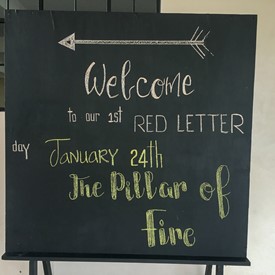 Welcome
to our 1st RED LETTER
day January 24th
The Pillar of
Fire